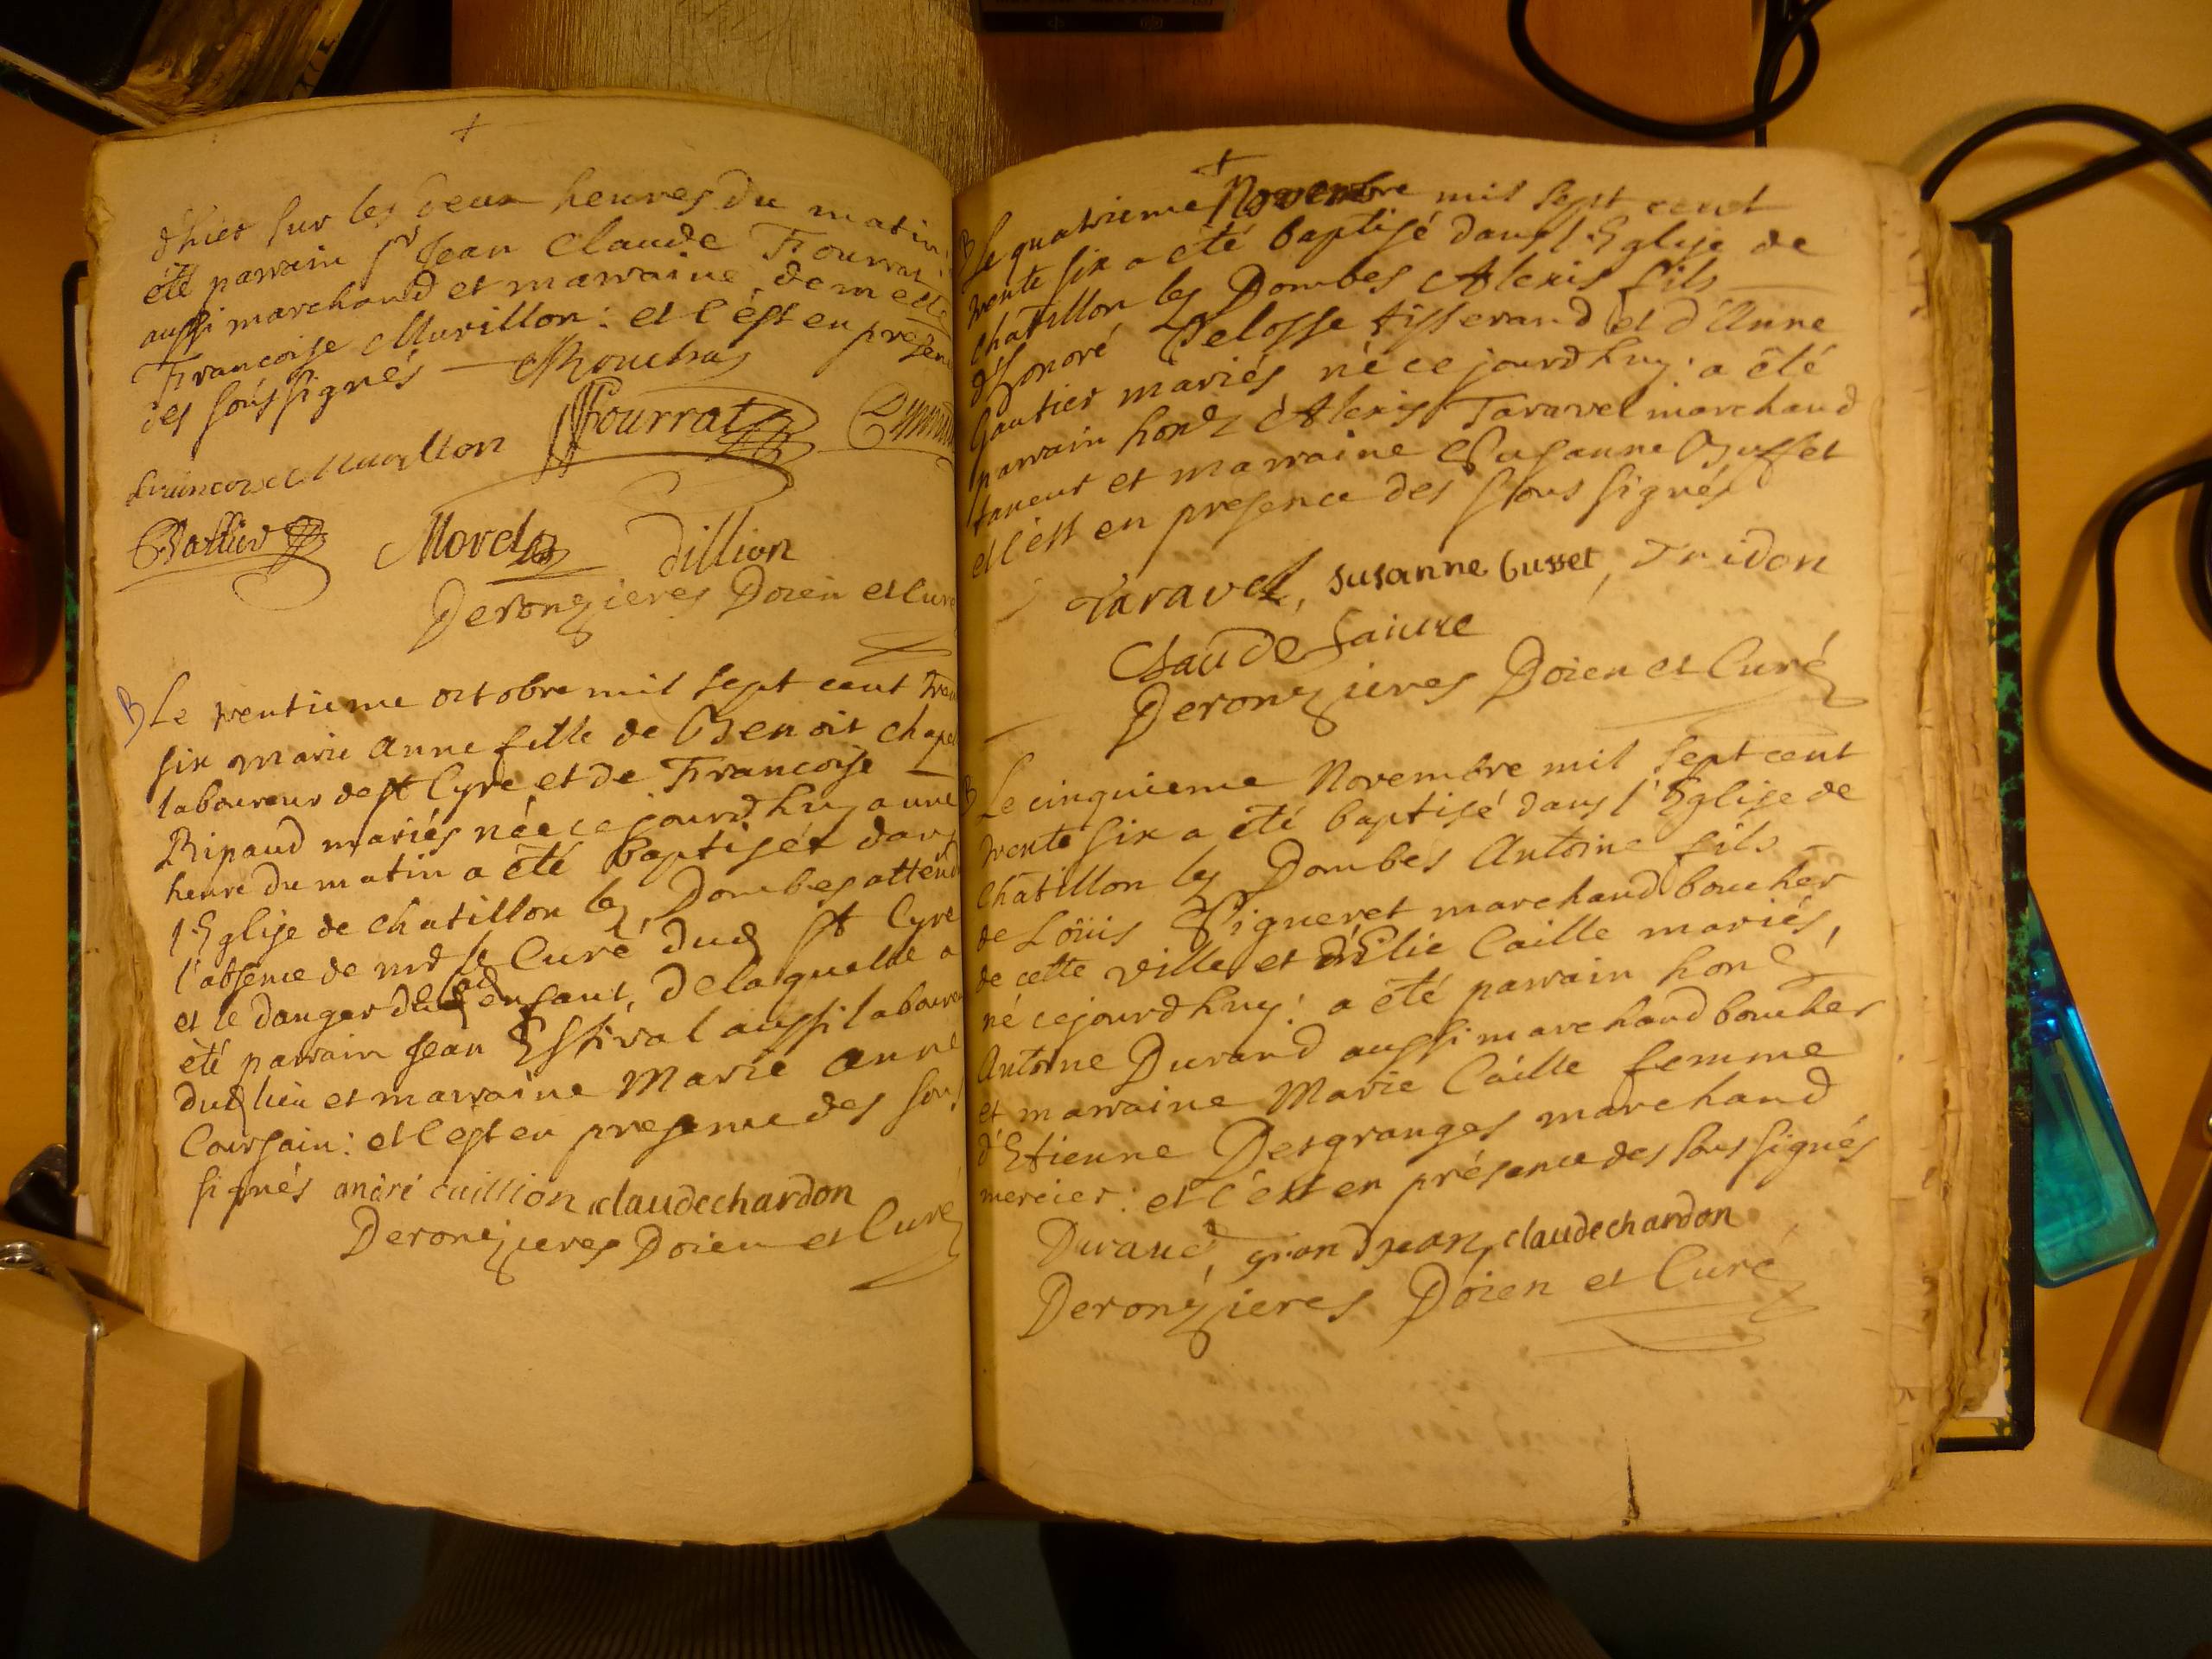 †
d'hier sur les deux heures du matin
été parrain sr Jean Claude Fourrat
aussi marchand et marraine demelle
Francoise Murillon : et c'est en presen
des sous signés
francoise Murillon fourrat
Morel dillion
Derongieres Doien et Curé
B Le trentieme octobre mil sept cent tren
six marie anne fille de Benoit chapel
laboureur de st Cyre et de Francoise
Ripaud mariés née ce jourdhuy a une
heure du matin a été baptisée dans
l'Eglise de chatillon les Dombes attendu
l'absence de mr le Curé dud st Cyre
et le danger dud enfant, de laquelle a
été parrain Jean Estival aussi laboureu
dud lieu et marraine Marie anne
Corsain : et c'est en presence des sous
signés andré cuillion claudechardon
Derongieres Doien et Curé
†
B Le quatrieme Novembre mil sept cent
trente six a eté baptisé dans l'Eglise de
chatillon les Dombes Alexis fils
d'honoré Delosse tisserand et d'Anne
Gautier mariés né ce jourdhuy : a été
parrain hond Alexis Taravel marchand
taneur et marraine Susanne Busset
et c'est en presence des sous signés
Taravel, susanne busset, Tridon
Claude faivre
Derongieres Doien et Curé
B Le cinquieme Novembre mil sept cent
trente six a été baptisé dans l'Eglise de
chatillon les Dombes Antoine fils
de Loüis Pigneret marchand boucher
de cette ville et d'Elie Caille mariés,
né cejourdhuy : a été parrain hond
Antoine Durand aussi marchand boucher
et marraine Marie Caille femme
d'Etienne Desgranges marchand
mercier : et c'est en présence des sous signés
Durand, grandjean, claudechardon
Derongieres Doien et Curé